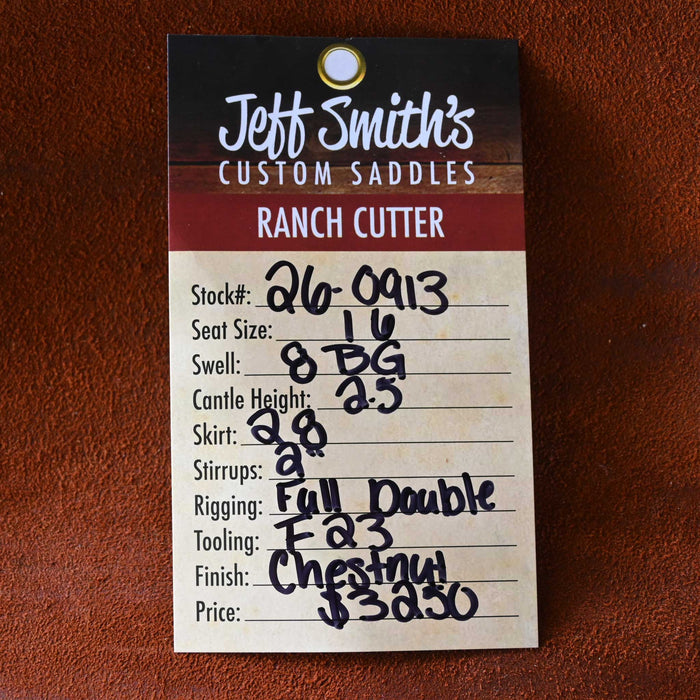 Jeff Smith's
CUSTOM SADDLES
RANCH CUTTER
Stock#: 26-0913
Seat Size: 16
Swell: 8 BG
Cantle Height: 2.5
Skirt: 28
Stirrups: 2"
Rigging: Full Double
Tooling: F23
Finish: Chestnut
Price: $3250